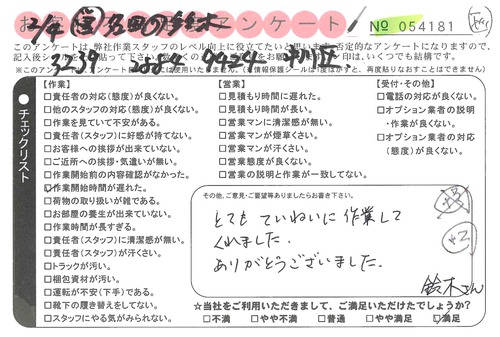 № 054181
このアンケートは、弊社作業スタッフのレベル向上に役立てたいと思います。否定的なアンケートになりますので、
【作業】
□責任者の対応(態度)が良くない。
□他のスタッフの対応(態度)が良くない。
□作業を見ていて不安がある。
□責任者(スタッフ)に好感が持てない。
□お客様への挨拶が出来ていない。
□ご近所への挨拶・気遣いが無い。
□作業開始前の内容確認がなかった。
□作業開始時間が遅れた。
□荷物の取り扱いが雑である。
□お部屋の養生が出来ていない。
□作業時間が長すぎる。
□責任者(スタッフ)に清潔感が無い。
□責任者(スタッフ)が汗くさい。
□トラックが汚い。
□梱包資材が汚い。
□運転が不安(下手)である。
□靴下の履き替えをしてない。
□スタッフにやる気がみられない。
【営業】
□見積もり時間に遅れた。
□見積もり時間が長い。
□営業マンに清潔感が無い。
□営業マンが煙草くさい。
□営業マンが汗くさい。
□営業態度が良くない。
□営業の説明と作業が一致してない。
【受付・その他】
□電話の対応が良くない。
□オプション業者の説明
・作業が良くない。
□オプション業者の対応
(態度)が良くない。
チェックリスト
その他、ご意見・ご要望等ありましたらお書き下さい。
とてもていねいに作業して
くれました。
ありがとうございました。
鈴木さん
☆当社をご利用いただきまして、ご満足いただけたでしょうか?
□不満 □やや不満 □普通 □やや満足 □満足